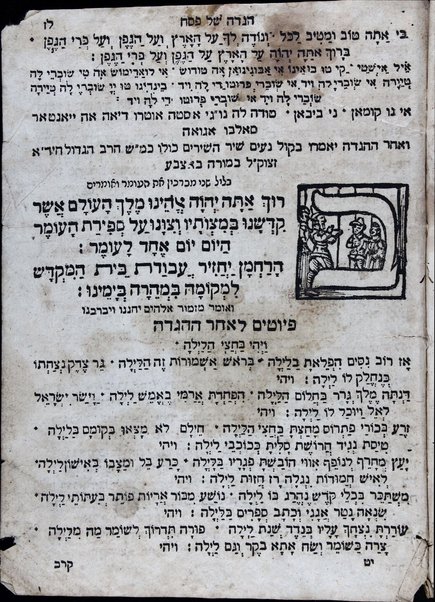 הגדה של פסח
לז
כי אַתָּה טוֹב וּמֵטִיב לַכֹּל · וְנוֹדֶה לְךָ עַל הָאָרֶץ וְעַל הַגֶּפֶן וְעַל פְּרִי הַגֶּפֶן ·
בָּרוּךְ אַתָּה יְהוָֹה עַל הָאָרֶץ עַל הַגֶּפֶן וְעַל פְּרִי הַגֶּפֶן :
שׂוֹבְרִי לָה וִיד אִי שׂוֹבְרִי פרוטו די לה ויד
אי נו קומאן · ני ביבאן · סודה לה נוג׳י אסטה אוטרו דיאה אה ייאנטאר
סאלבו אגואה
ואחר ההגדה יאמרו בקול נעים שיר השירים כולו כמ״ש הרב הגדול חיד״א
זצוק״ל במורה באצבע
בליל שני מברכין את העומר ואומרים
רוּךְ אַתָּה יְהֹוָה אֱלֹהֵינוּ מֶלֶךְ הָעוֹלָם אֲשֶׁר
קִדְּשָׁנוּ בְּמִצְוֹתָיו וְצִוָּנוּ עַל סְפִירַת הָעוֹמֶר
הַיּוֹם יוֹם אֶחָד לָעוֹמֶר :
הָרַחְמָן יַחֲזִיר עֲבוֹדַת בֵּית הַמִּקְדָּשׁ
לִמְקוֹמָהּ בִּמְהֵרָה בְּיָמֵינוּ :
ואומר מזמור אלהים יחננו ויברכנו
פיוטים לאחר ההגדה
וַיְהִי בַּחֲצִי הַלַּיְלָה ·
אָז רוֹב נִסִּים הִפְלֵאתָ בַּלַּיְלָה · בְּרֹאשׁ אַשְׁמוּרוֹת זֶה הַלַּיְלָה · גֵּר צֶדֶק נִצַּחְתּוֹ
כְּנֶחֱלַק לוֹ לַיְלָה : ויהי
דַּנְתָּ מֶלֶךְ גְּרָר בַּחֲלוֹם הַלַּיְלָה · הִפְחַדְתָּ אֲרַמִּי בְּאֶמֶשׁ לַיְלָה · וַיָּשַׂר יִשְׂרָאֵל
לָאֵל וַיּוּכַל לוֹ לַיְלָה : ויהי
זֶרַע בְּכוֹרֵי פַתְרוֹס מָחַצְתָּ בַּחֲצִי הַלַּיְלָה · חֵילָם לֹא מָצְאוּ בְּקוּמָם בַּלַּיְלָה ·
טִיסַת נְגִיד חֲרוֹשֶׁת סִלִּיתָ בְּכוֹכְבֵי לַיְלָה : ויהי
יָעַץ מְחָרֵף לְנוֹפֵף אִוּוּי הוֹבַשְׁתָּ פְגָרָיו בַּלַּיְלָה · כָּרַע בֵּל וּמַצָּבוֹ בְּאִישׁוֹן לַיְלָה ·
לְאִישׁ חֲמוּדוֹת נִגְלָה רָז חֲזוּת לַיְלָה : ויהי
מִשְׁתַּכֵּר בִּכְלֵי קֹדֶשׁ נֶהֱרַג בּוֹ לַיְלָה · נוֹשַׁע מִבּוֹר אֲרָיוֹת פּוֹתֵר בִּעֲתוּתֵי לַיְלָה ·
שִׂנְאָה נָטַר אֲגָגִי וְכָתַב סְפָרִים בַּלַּיְלָה : ויהי
עוֹרַרְתָּ נִצְחֲךָ עָלָיו בְּנֶדֶד שְׁנַת לַיְלָה · פּוּרָה תִדְרוֹךְ לְשׁוֹמֵר מַה מִּלַּיְלָה ·
צָרַח כַּשּׁוֹמֵר וְשָׂח אָתָא בֹקֶר וְגַם לַיְלָה : ויהי
יט
קרב